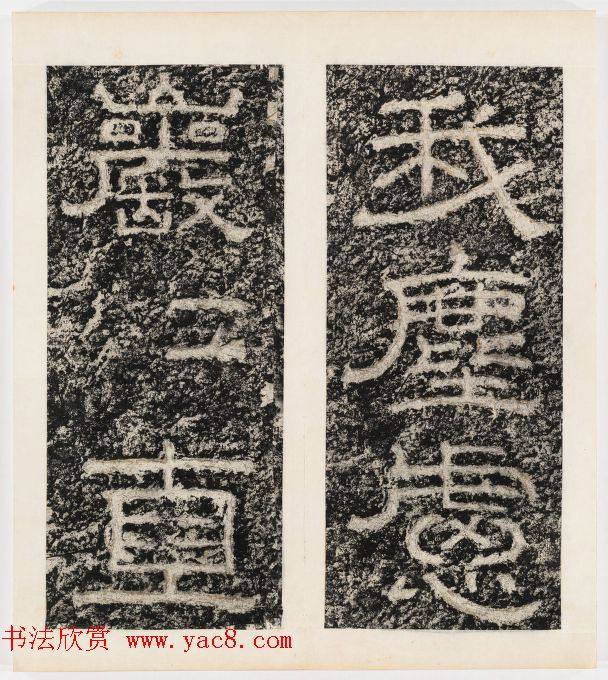 我塵慮
巖
重
书法欣赏 www.yac8.com